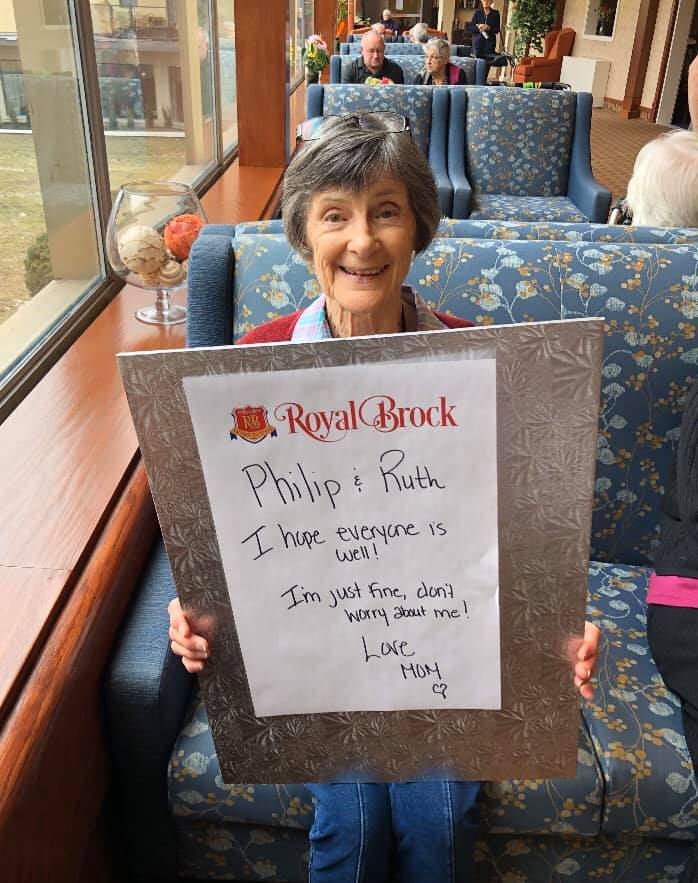 RB
Royal Brock
Philip & Ruth
I hope everyone is
well!
I'm just fine, don't
worry about me!
Love
MOM